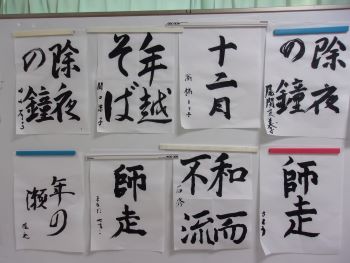 除夜
の鐘
年越
そば
十二月
除夜
の鐘
年の
瀬
師走
和而
不流
師走